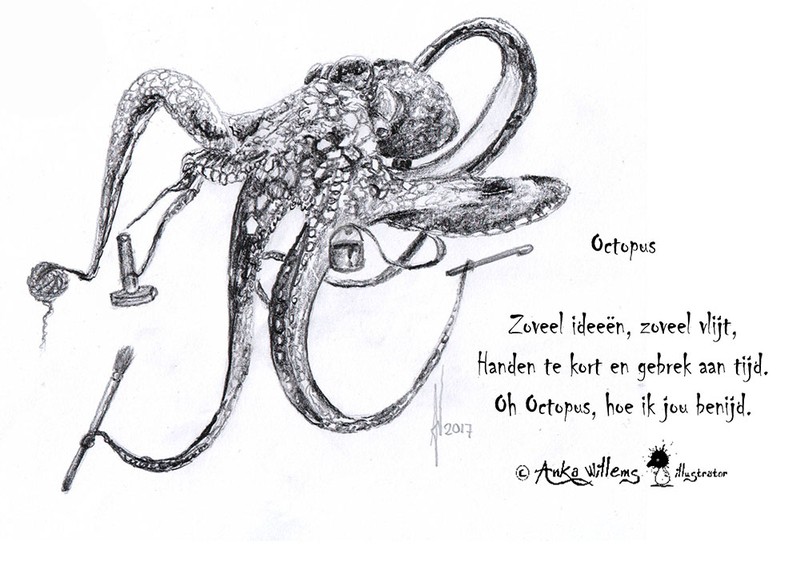 Octopus
Zoveel ideeën, zoveel vlijt,
Handen te kort en gebrek aan tijd.
Oh Octopus, hoe ik jou benijd.
© Anka Willems illustrator
2017